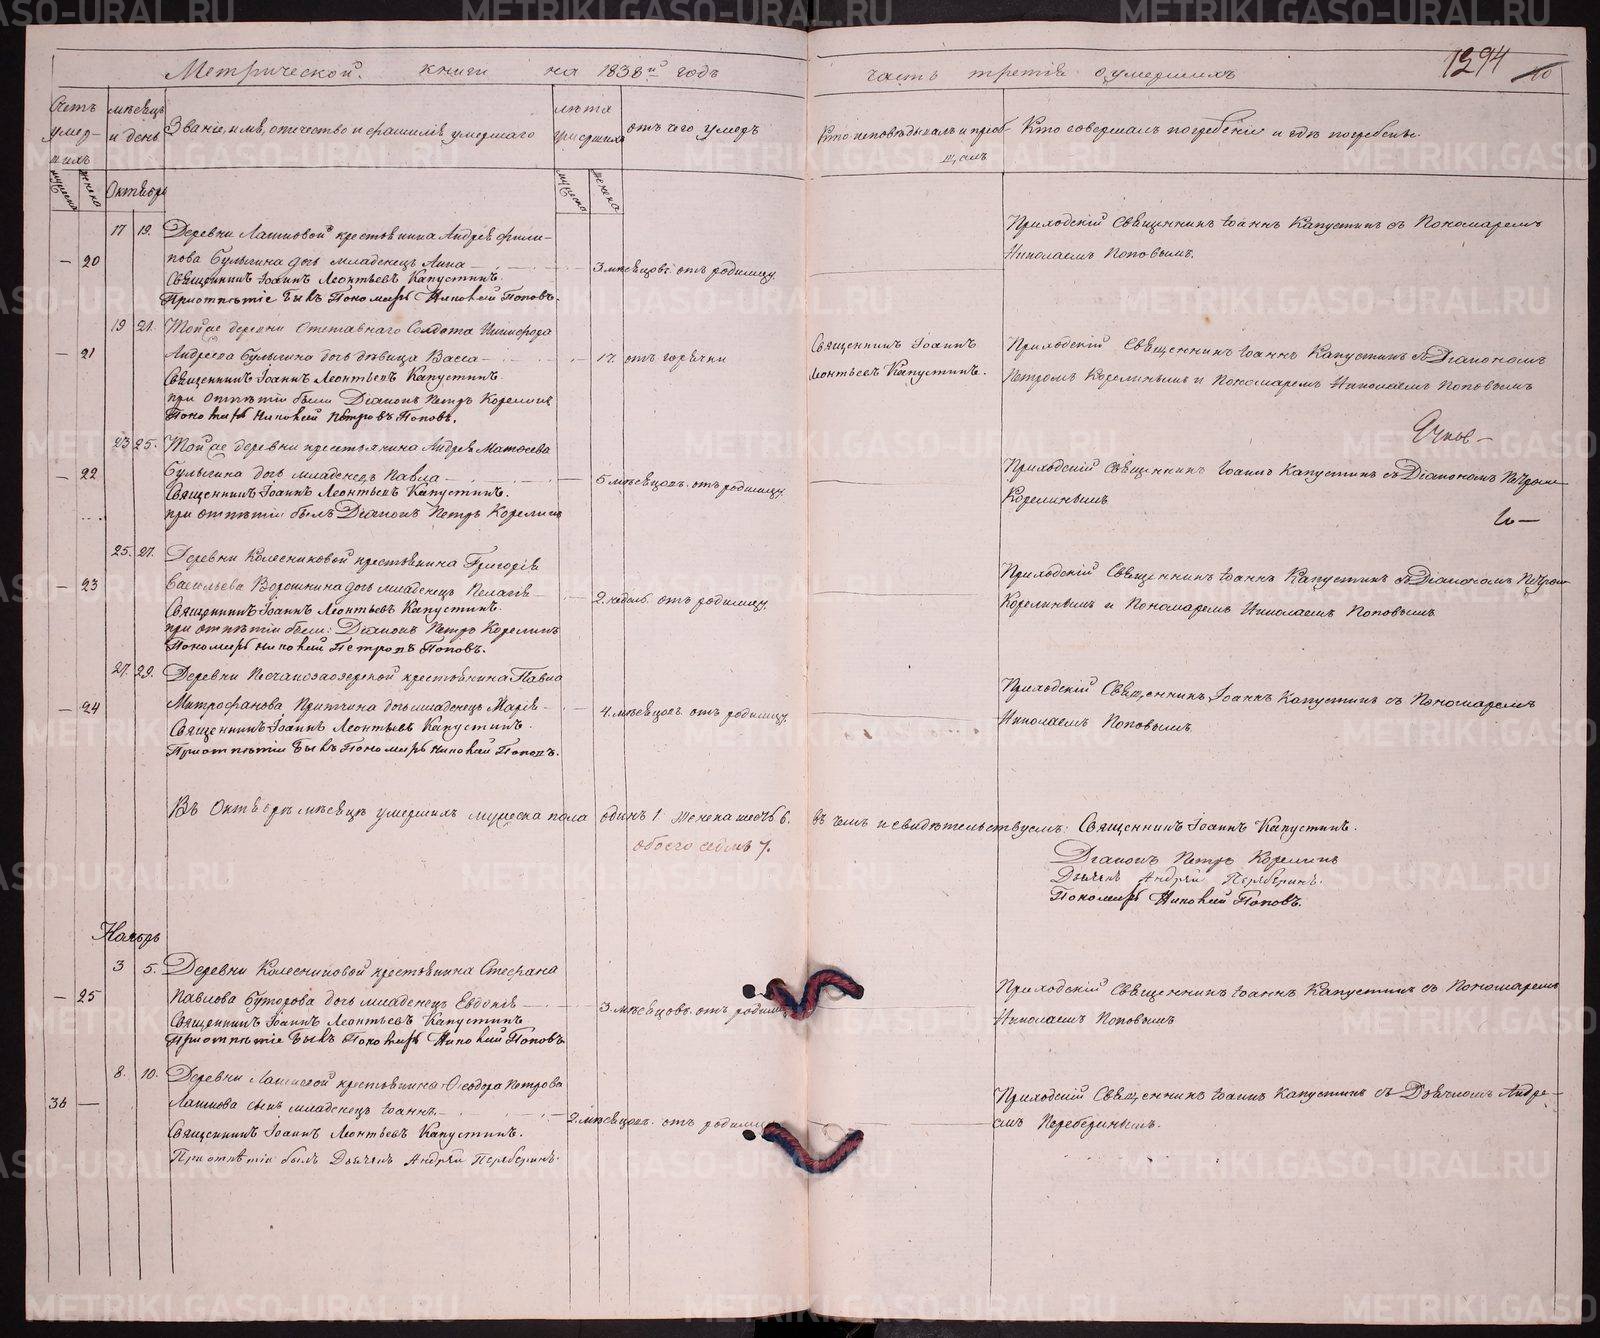 Метрической книги на 1838й годъ часть третія о умершихъ
1294
Счетъ умер-шихъ
мѣсяцъ и день
Званіе, имя, отечество и фамилія умершаго
лѣта умершихъ
отъ чего умеръ
Кто исповѣдывалъ и пріоб-щалъ
Кто совершалъ погребеніе и гдѣ погребены.
мужеска
женска
Октябрь
мужеска
женска
17 19. Деревни Лашковой крестьянина Андрея Фили-
– 20 пова Булыгина дочь младенецъ Анна — 3 мѣсяцовъ отъ родимцу
Священникъ Іоаннъ Леонтьевъ Капустинъ.
При отпѣтіе былъ Пономарь Николай Поповъ.
Приходскій Священникъ Іоаннъ Капустинъ съ Пономаремъ
Николаемъ Поповымъ.
19 21. Той же деревни Отставнаго Солдата
– 21 Андреева Булыгина дочь дѣвица Васса — 17. отъ горячки
Священникъ Іоаннъ Леонтьевъ Капустинъ.
при отпѣтіи были Діаконъ Петръ Корелинъ
Пономарь Николай Петровъ Поповъ.
Священникъ Іоаннъ
Леонтьевъ Капустинъ.
Приходскій Священникъ Іоаннъ Капустинъ съ Діакономъ
Петромъ Корелинымъ и Пономаремъ Николаемъ Поповымъ
23 25. Той же деревни крестьянина Андрея Матвеева
– 22 Булыгина дочь младенецъ Павла — 5 мѣсяцовъ. отъ родимцу
Священникъ Іоаннъ Леонтьевъ Капустинъ.
при отпѣтіи былъ Діаконъ Петръ Корелинъ
Приходскій Священникъ Іоаннъ Капустинъ съ Діакономъ Петромъ
Корелинымъ
25. 27. Деревни Колесниковой крестьянина Григорія
– 23 Васильева Ворошнина дочь младенецъ Пелагія — 2. недель. отъ родимцу
Священникъ Іоаннъ Леонтьевъ Капустинъ.
при отпѣтіи были: Діаконъ Петръ Корелинъ
Пономарь Николай Петровъ Поповъ.
Приходскій Священникъ Іоаннъ Капустинъ съ Діакономъ Петромъ
Корелинымъ и Пономаремъ Николаемъ Поповымъ
27. 29. Деревни Песчаноозерской крестьянина Павла
– 24 Митрофанова Притчина дочь младенецъ Марія — 4. мѣсяцовъ. отъ родимцу
Священникъ Іоаннъ Леонтьевъ Капустинъ.
При отпѣтіи былъ Пономарь Николай Поповъ.
Приходскій Священникъ Іоаннъ Капустинъ съ Пономаремъ
Николаемъ Поповымъ.
Въ Октябрѣ мѣсяцѣ умершихъ мужеска пола одинъ 1 женска шесть 6. въ чемъ и свидѣтельствуемъ: Священникъ Іоаннъ Капустинъ.
обоего седмь 7.
Діаконъ Петръ Корелинъ
Дьячекъ Андрей Переберинъ.
Пономарь Николай Поповъ.
Ноябрь
3 5. Деревни Колесниковой крестьянина Стефана
– 25 Павлова Буторова дочь младенецъ Евдокія — 3. мѣсяцовъ. отъ родимцу
Священникъ Іоаннъ Леонтьевъ Капустинъ
При отпѣтіе былъ Пономарь Николай Поповъ
Приходскій Священникъ Іоаннъ Капустинъ съ Пономаремъ
Николаемъ Поповымъ
8. 10. Деревни Лашковой крестьянина Ѳеодора Петрова
36 — Лашкова сынъ младенецъ Іоаннъ. — 2. мѣсяцовъ. отъ родимцу
Священникъ Іоаннъ Леонтьевъ Капустинъ.
При отпѣтіи былъ Дьячекъ Андрей Переберинъ.
Приходскій Священникъ Іоаннъ Капустинъ съ Дьячкомъ Андре-
емъ Переберинымъ.
METRIKI.GASO-URAL.RU